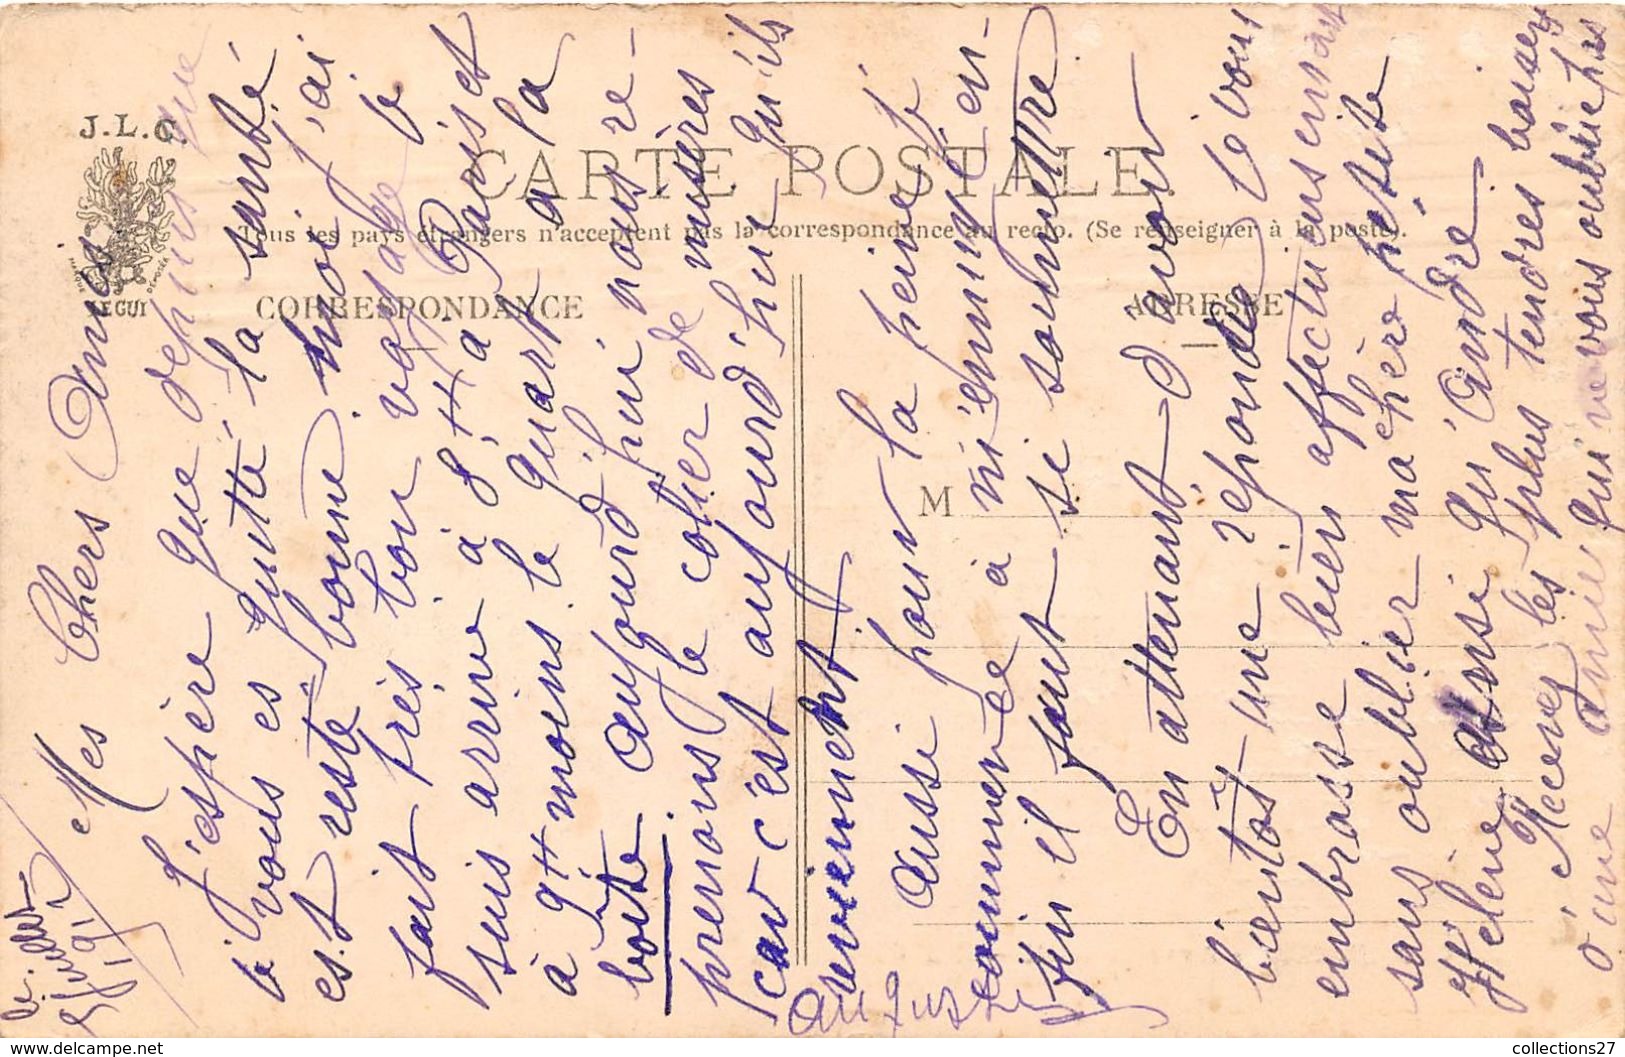 J.L.C
LEGUI
CARTE POSTALE.
Tous les pays étrangers n'acceptent pas la correspondance au recto. (Se renseigner à la poste).
CORRESPONDANCE
ADRESSE
M
le
juillet 1912
Mes Chers Amies
J'espère que depuis que
je vous es quitté la santé
est resté bonne moi j'ai
fait très bon voyage je
suis arrivé à 8H à Paris et
à 9H moins le quart à la
boîte aujourd'hui nous re-
prenons le colier de misères
car c'est aujourd'hui qu'ils
reviennent
Aussi pour la peine
commence à m'ennuyé en-
fin il faut si soumettre
En attenant d'avoir
bientôt une réponde je vous
embrasse bien affectueusement
sans oublier ma chère petite
Hélène ainsi qu'André
Recevez les plus tendres baisers
d'une amie qui ne vous oublie pas
Augustine
collections27